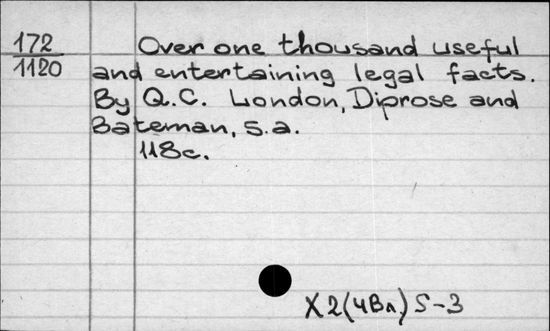 172
1120
Over one thousand useful
and entertaining legal facts.
By Q.C. London, Diprose and
Bateman, s.a.
118c.
X2(4Вл) S-3